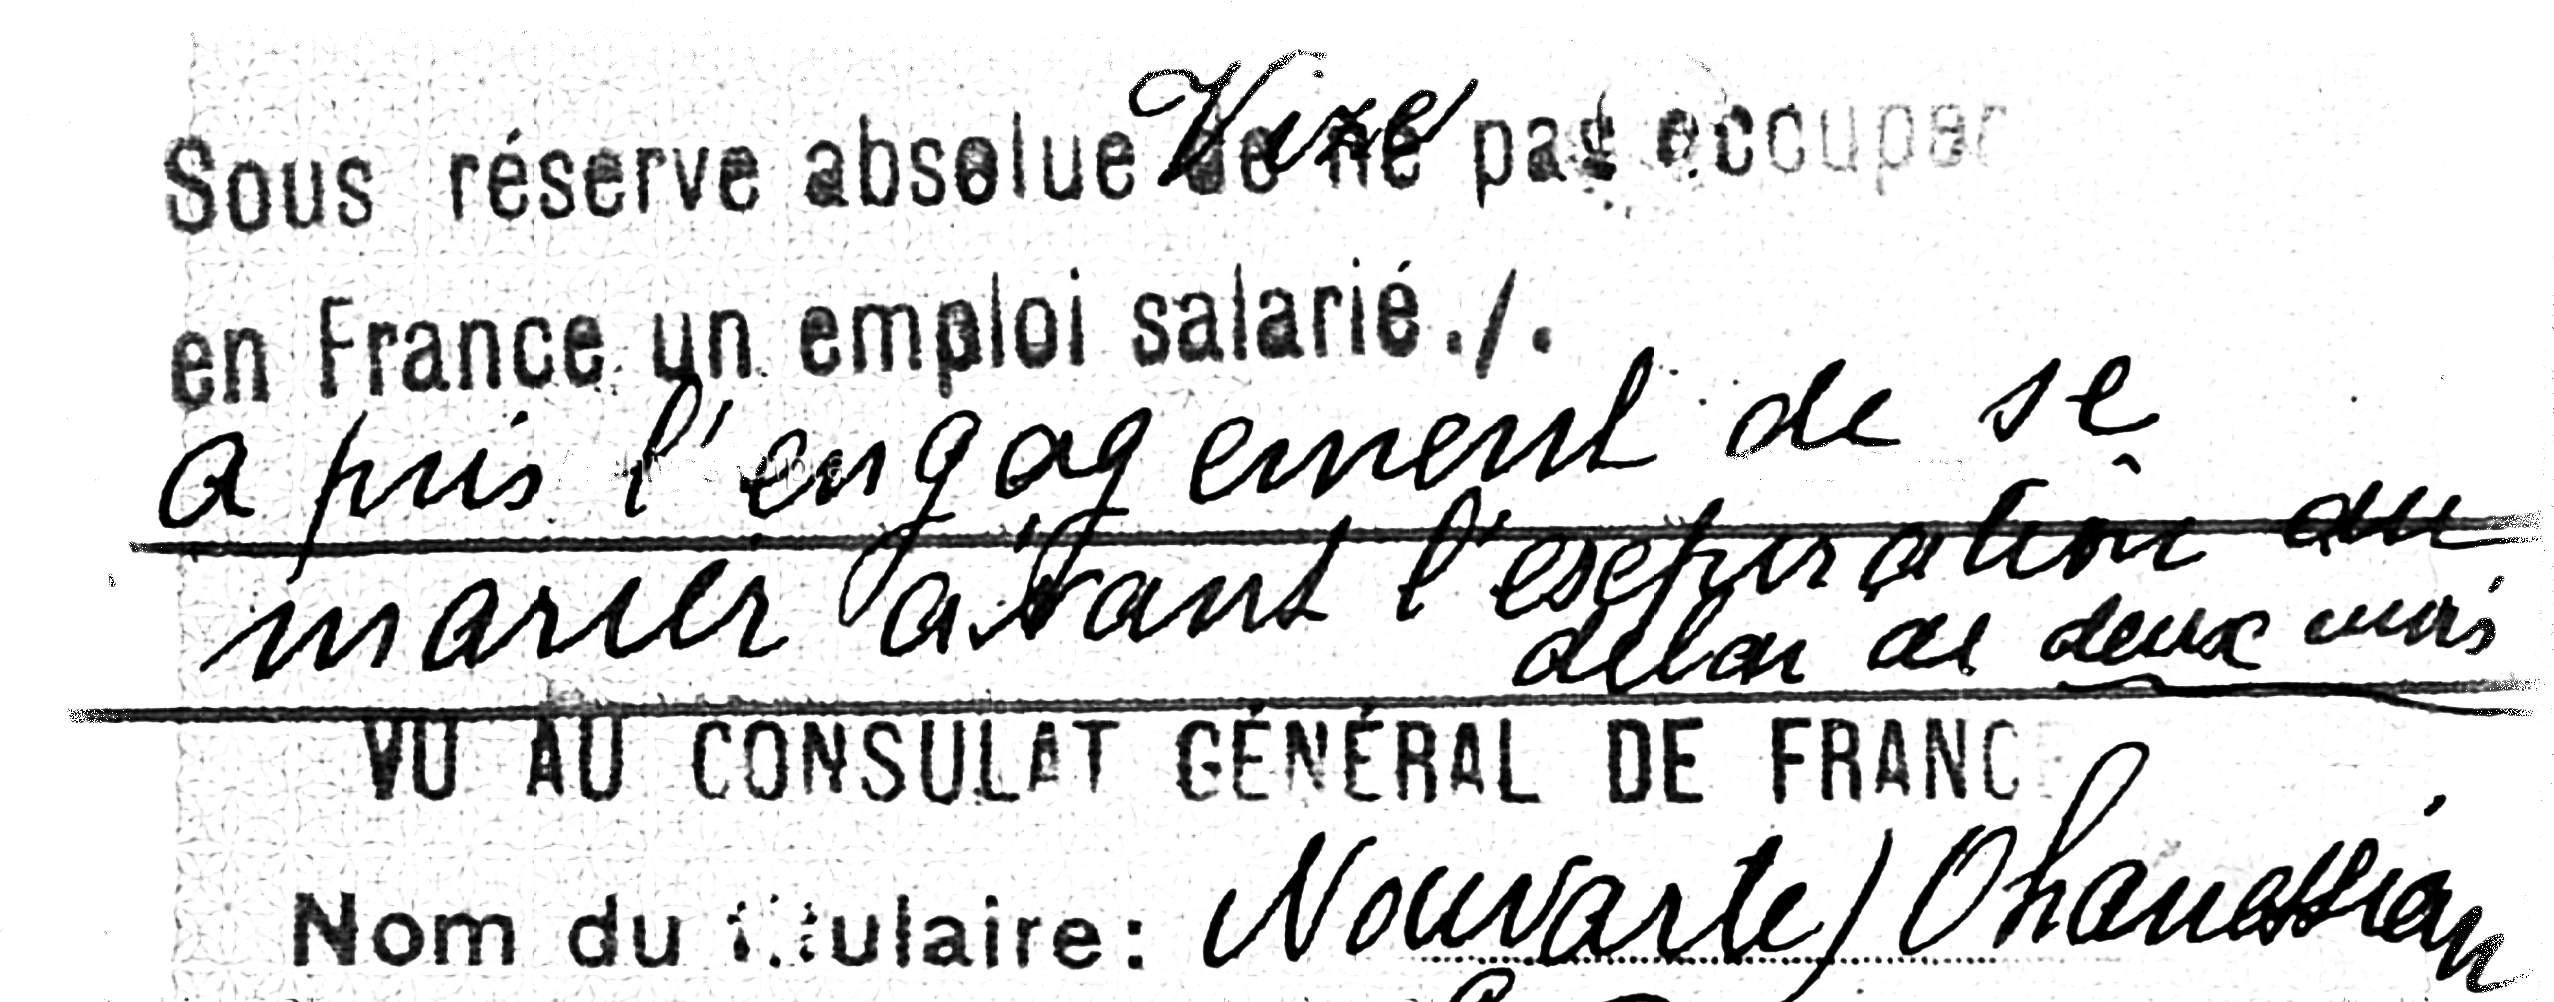 Sous réserve absolue de ne pas occuper
en France un emploi salarié./.
a pris l'engagement de se
marier avant l'expiration du
délai de deux mois
VU AU CONSULAT GÉNÉRAL DE FRANC
Nom du titulaire: Nouvarte / Ohanessian